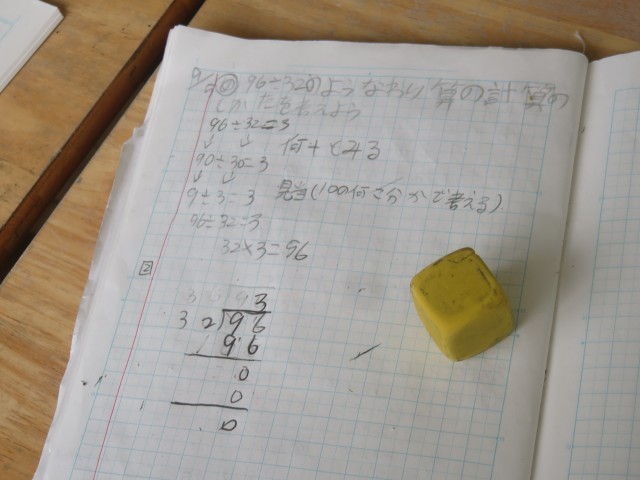 9/2 ◎ 96÷32のようなわり算の計算の
しかたを考えよう
96÷32=3
↓ ↓ 何十とみる
90÷30=3
↓ ↓
9÷3=3 見当(10の何こ分かで考える)
96÷32=3
32×3=96
2
3
32)96
96
0
0
0